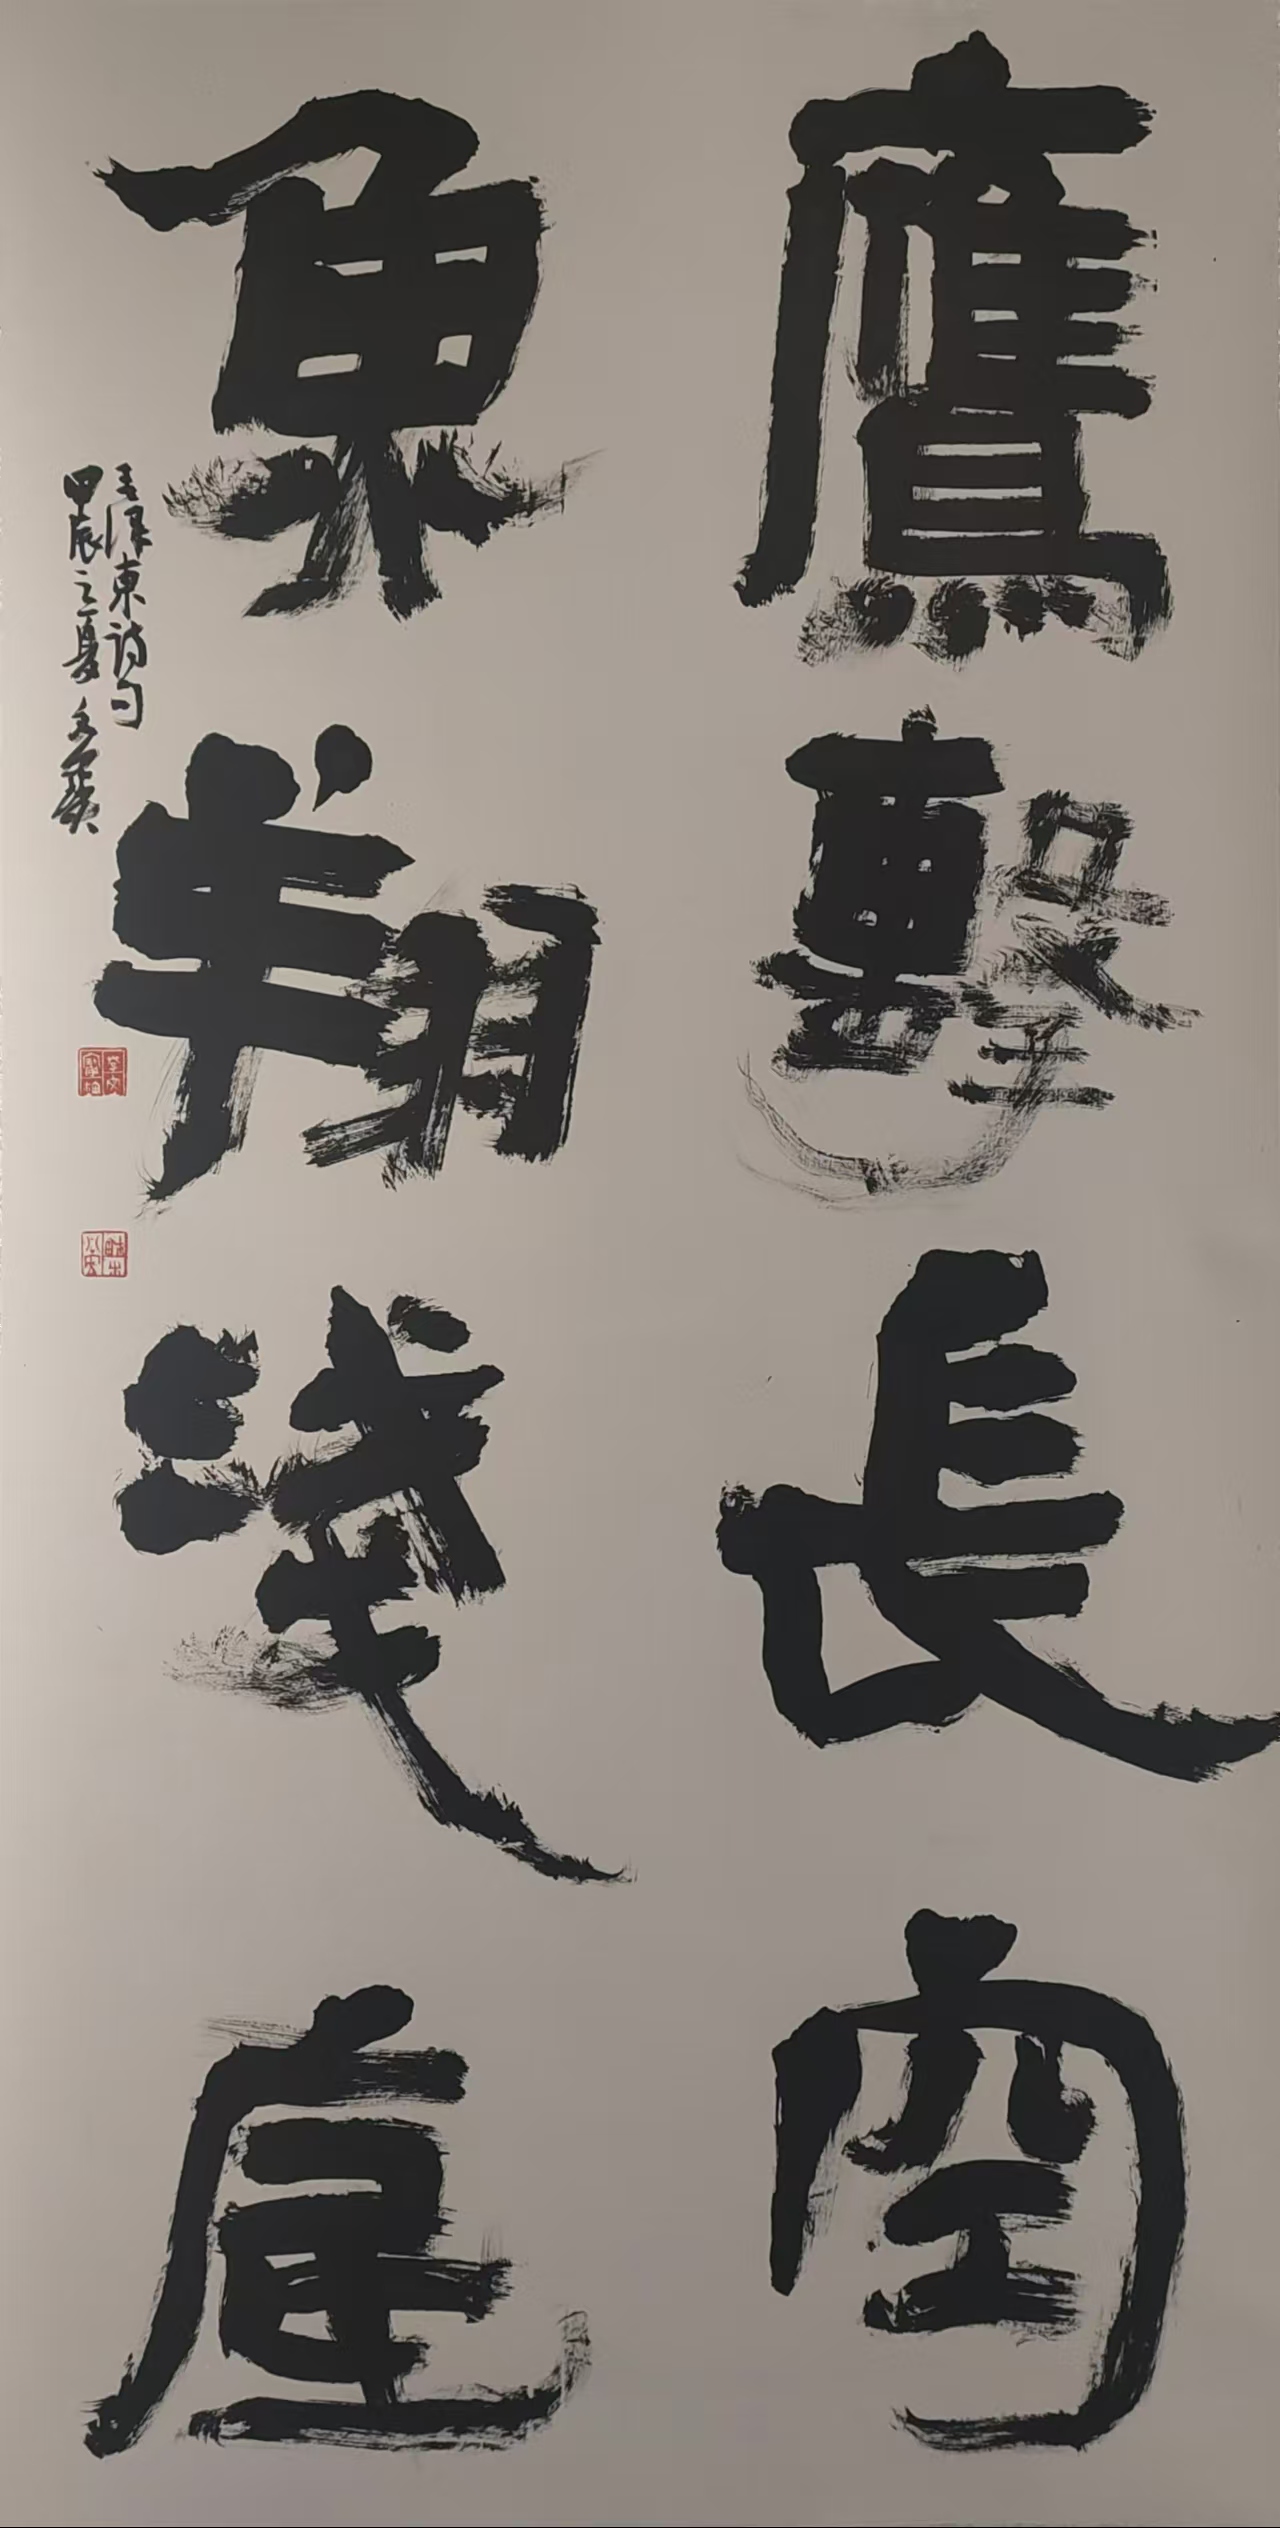 鷹擊長空
魚翔淺底
毛澤東詩句
甲辰之夏